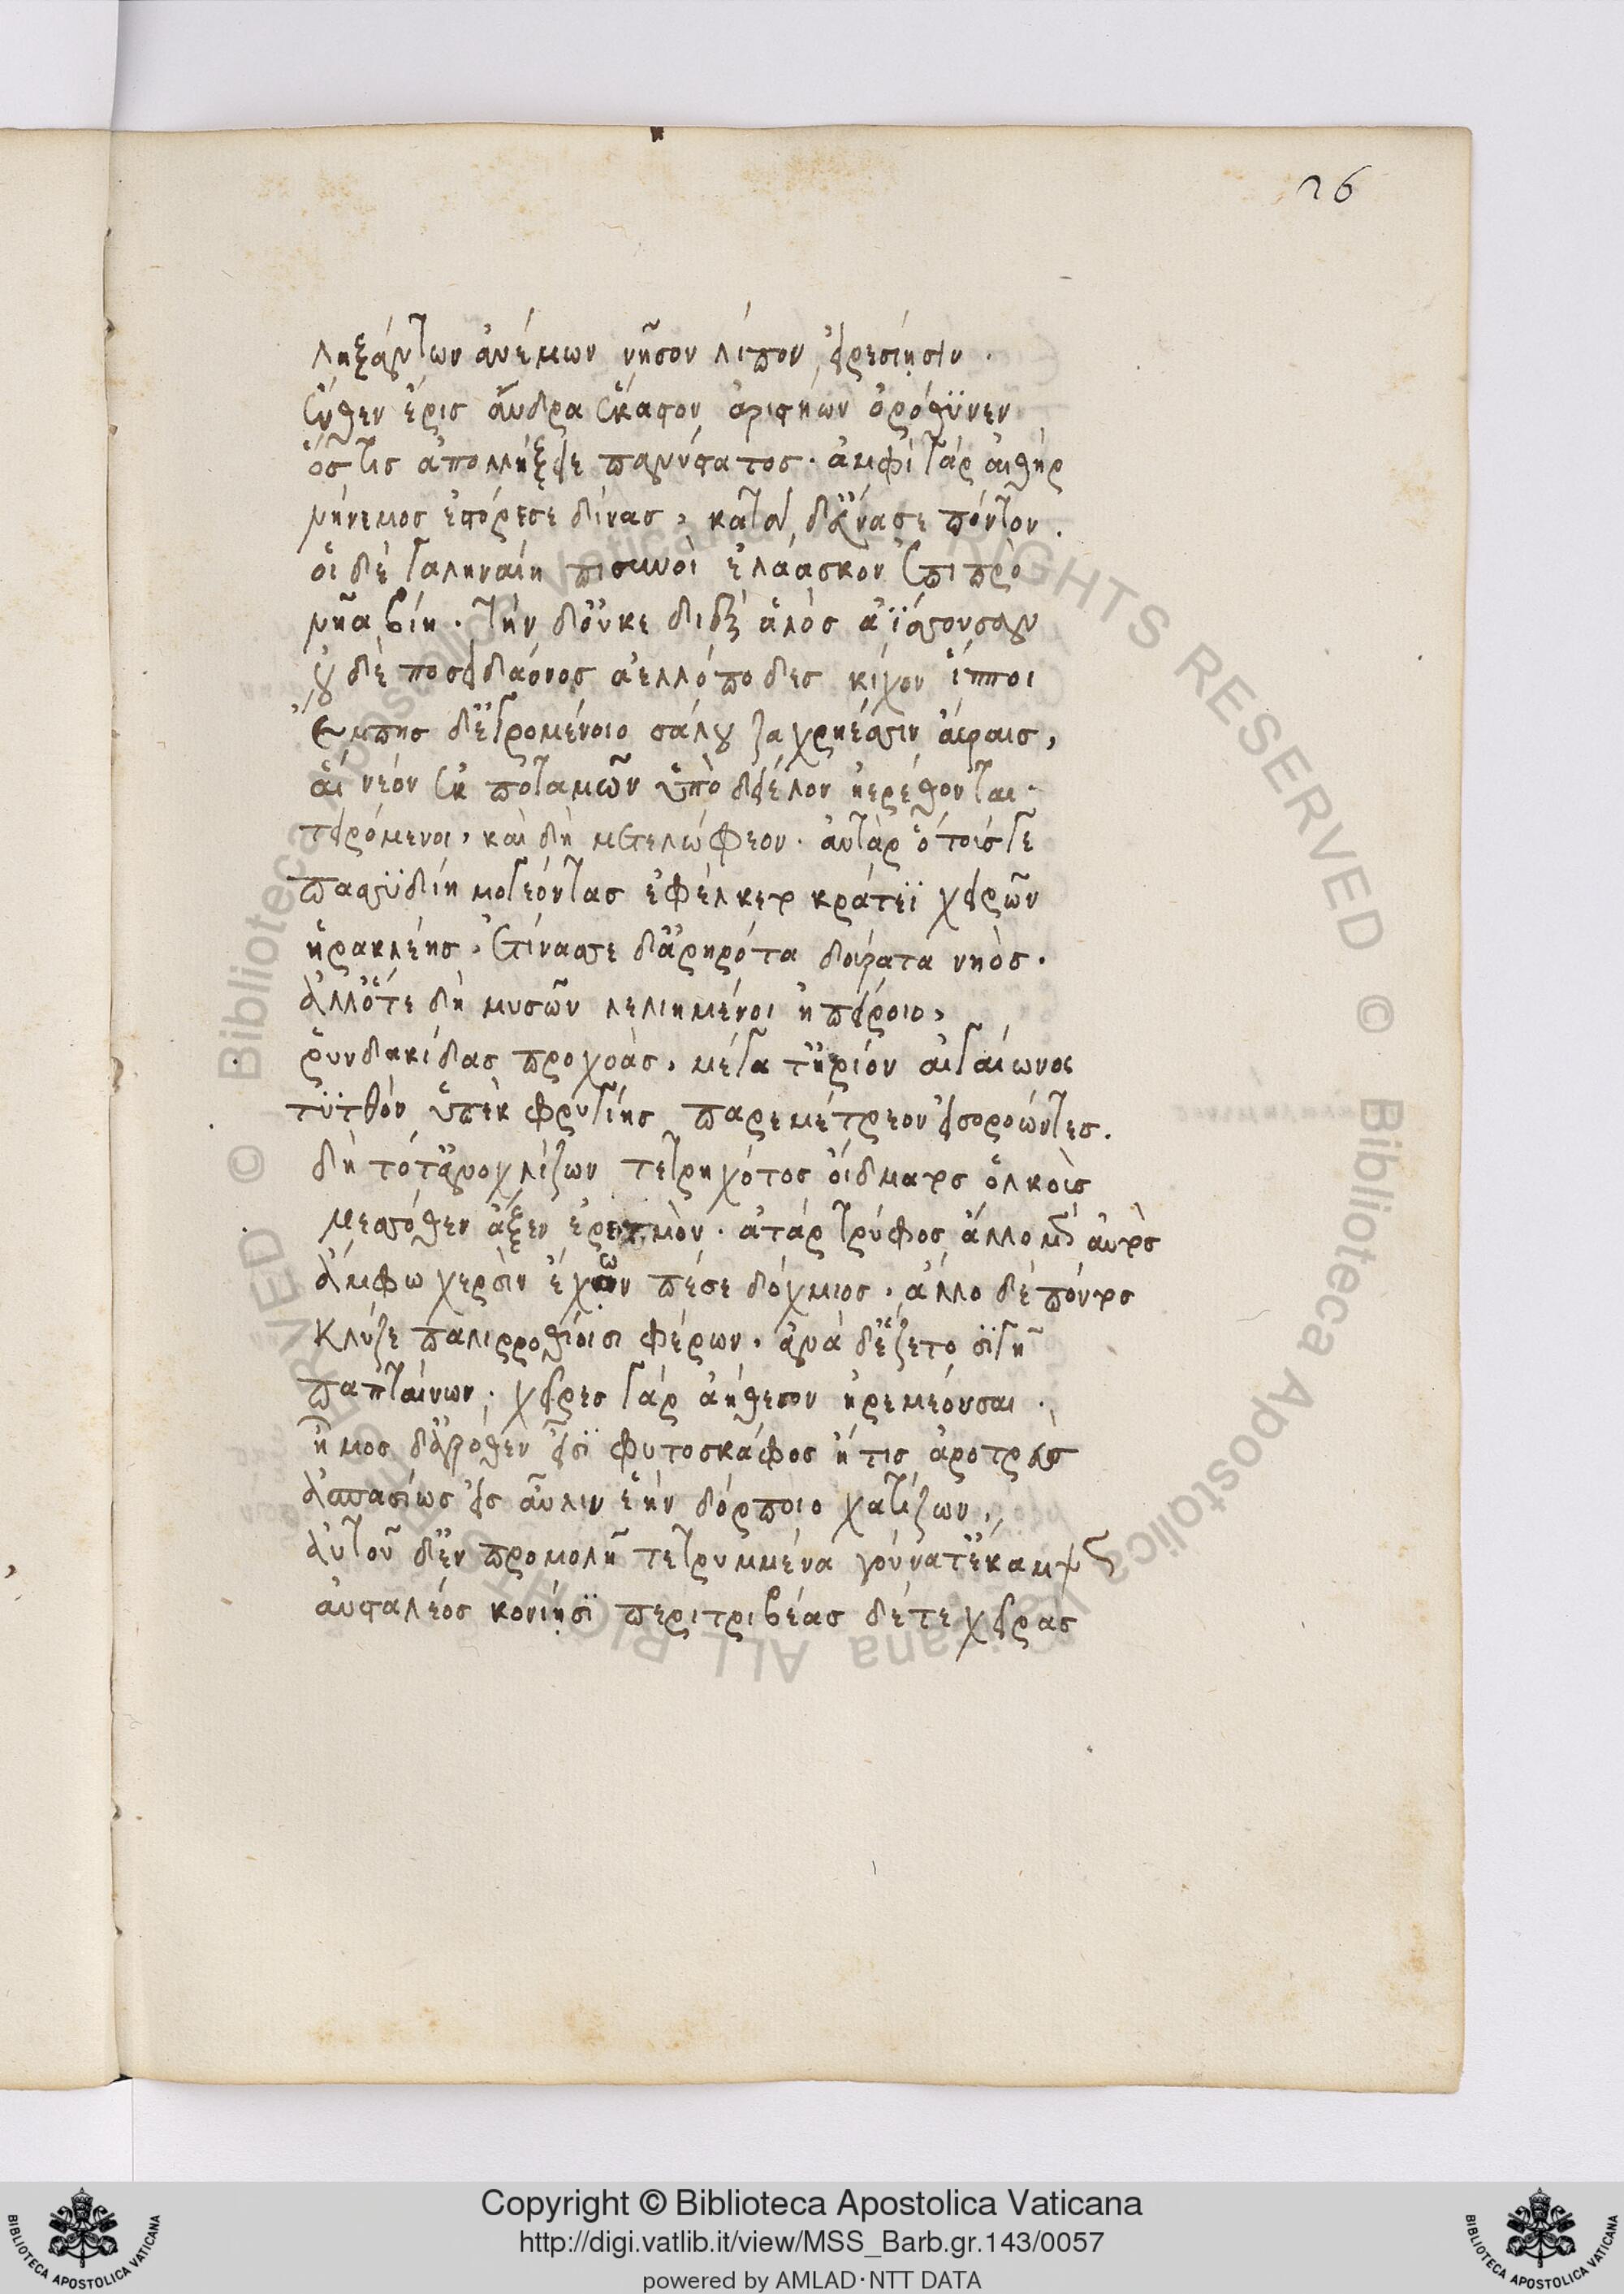 26
ληξάντων ἀνέμων νῆσον λίπον εἰρεσίῃσιν.
ἔνθεν ἔρις ἄνδρα ἕκαστον ἀριστήων ὀρόθϋνεν
ὅστις ἀπολλήξειε πανύστατος. ἀμφὶ γὰρ αἰθὴρ
νήνεμος ἐστόρεσε δίνας, κατὰ δ' εὔνασε πόντον.
οἱ δὲ γαληναίῃ πίσυνοι ἐλάασκον ἐπιπρὸ
νῆα βίῃ. τὴν δ' οὔκε διὲξ ἁλὸς ἀΐσσουσαν
οὐδὲ ποσειδάωνος ἀελλόποδες κίχον ἵπποι
ἔμπης δ' ἐγρομένοιο σάλου ζαχρηέσιν αὔραις,
αἳ νέον ἐκ ποταμῶν ὑπὸ δείελον ἠερέθονται.
τειρόμενοι, καὶ δὴ μετελώφεον. αὐτὰρ ὁ τούσγε
πασσϋδίῃ μογέοντας ἐφέλκετο κράτεϊ χειρῶν
ἡρακλέης. ἐτίνασσε δ' ἀρηρότα δούρατα νηός.
ἀλλ' ὅτε δὴ μυσῶν λελιημένοι ἠπείροιο,
ῥυνδακίδας προχοὰς, μέγα τ' ἠρίον αἰγαίωνος
τϋτθὸν ὑπὲκ φρυγίης παρεμέτρεον εἰσορόωντες.
δὴ τότ' ἀνοχλίζων τετρηχότος οἴδματος ὁλκοὺς
μεσσόθεν ἆξεν ἐρετμόν. ἀτὰρ τρύφος ἄλλο μὲν αὐτὸς
ἄμφω χερσὶν ἔχων πέσε δόχμιος. ἄλλο δὲ πόντος
κλύζε παλιρροθίοισι φέρων. ἀνὰ δ' ἕζετο σϊγῇ
παπταίνων. χεῖρες γὰρ ἀήθεσον ἠρεμέουσαι.
ἦμος δ' ἀγρόθεν εἶσϊ φυτοσκάφος ἤ τις ἀροτρεὺς
ἀσπασίως εἰς αὖλιν ἑὴν δόρποιο χατίζων,
αὐτοῦ δ' ἐν προμολῇ τετρυμμένα γούνατ' ἔκαμψεν
αὐσταλέος κονίῃσϊ περιτριβέας δέ τε χεῖρας
Copyright © Biblioteca Apostolica Vaticana
http://digi.vatlib.it/view/MSS_Barb.gr.143/0057
powered by AMLAD·NTT DATA